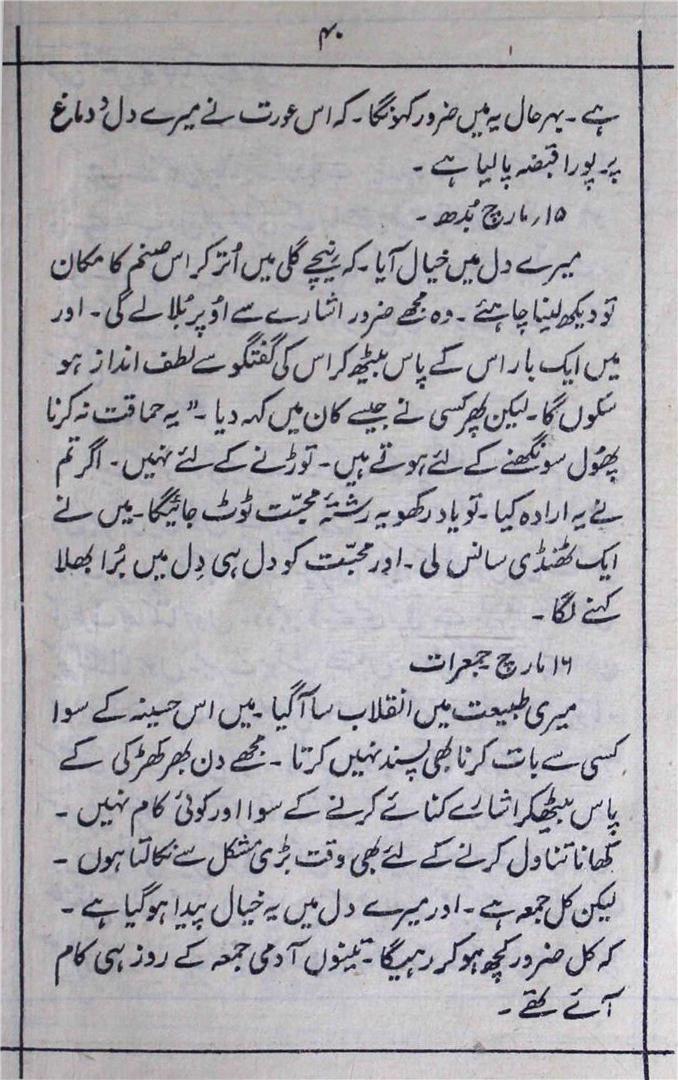 ۴۰
ہے ۔ بہرحال یہ میں ضرور کہونگا ۔ کہ اس عورت نے میرے دل و دماغ
پر پورا قبضہ پا لیا ہے ۔
۱۵ مارچ بُدھ ۔
میرے دل میں خیال آیا ۔ کہ نیچے گلی میں اُتر کر اس صنم کا مکان
تو دیکھ لینا چاہئے ۔ وہ مجھے ضرور اشارے سے اوُپر بُلا لے گی ۔ اور
میں ایک بار اس کے پاس بیٹھ کر اس کی گفتگو سے لطف انداز ہو
سکوں گا ۔ لیکن پھر کسی نے جیسے کان میں کہہ دیا ۔ " یہ حماقت نہ کرنا
پھُول سونگھنے کے لئے ہوتے ہیں ۔ توڑنے کے لئے نہیں ۔ اگر تم
نے یہ ارادہ کیا ۔ تو یاد رکھو یہ رشتۂ محبّت ٹوٹ جائیگا ۔ میں نے
ایک ٹھنڈی سانس لی ۔ اور محبّت کو دل ہی دِل میں بُرا بھلا
کہنے لگا ۔
۱۶ مارچ جمعرات
میری طبیعت میں انقلاب سا آ گیا ۔ میں اس حسینہ کے سوا
کسی سے بات کرنا بھی پسند نہیں کرتا ۔ مجھے دن بھر کھڑکی کے
پاس بیٹھکر اشارے کنائے کرنے کے سوا اور کوئی کام نہیں ۔
کھانا تناول کرنے کے لئے بھی وقت بڑی مشکل سے نکالتا ہوں ۔
لیکن کل جمعہ ہے ۔ اور میرے دل میں یہ خیال پیدا ہو گیا ہے ۔
کہ کل ضرور کچھ ہو کر رہیگا ۔ تینوں آدمی جمعہ کے روز ہی کام
آئے تھے ۔